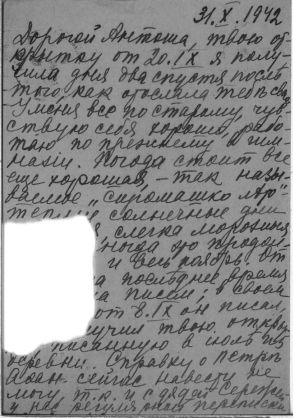 31.X.1942
Дорогой Антоша, твою от-
крытку от 20.IX я полу-
чила дня два спустя после
того, как отослала тебе свою
У меня все по старому, чув-
ствую себя хорошо, рабо-
таю по прежнему в гим-
назии. Погода стоит все
еще хорошая, - так назы-
ваемое „сиромашко лято"-
теплые солнечные дни
слегка морозные
иногда до
и весь ноябрь. От
последнее время
писем, в своем
от 8.IX он писал,
получил твою откры
писанную в июле из
деревни. Справку о Петре
Афан. сейчас навести не
могу т.к. и с дядей Сережей
у нас регулярной переписки